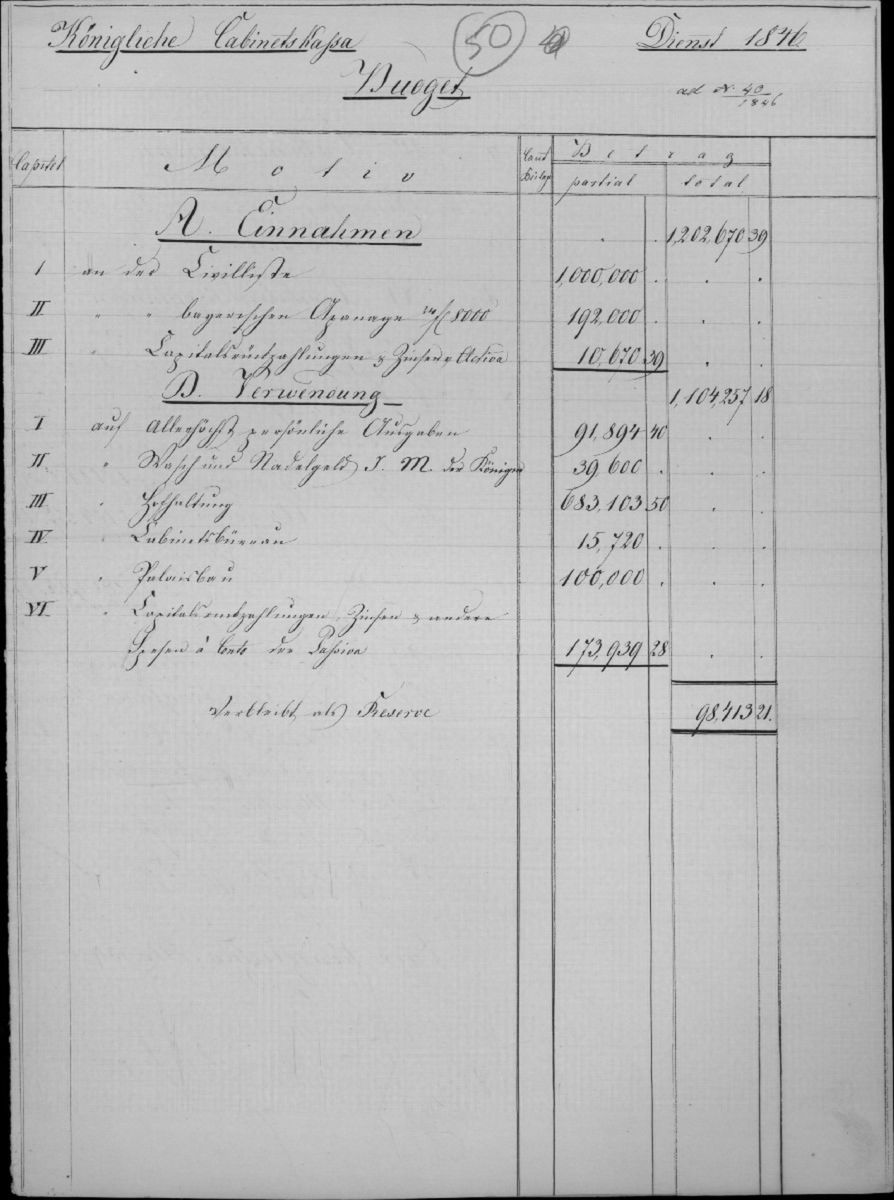 Königliche Cabinetskassa 50 Dienst 1846
Budget ad N. 40/1846
Capitel Motiv Laut Beilage Betrag
partial total
A. Einnahmen 1,202,670 39
I an der Civilliste 1,000,000
II " " bayerischen Apanage 8000 192,000
III " Capitalsrückzahlungen & Zinsen v. Activa 10,670 39
B. Verwendung 1,104,257 18
I auf Allerhöchst persönliche Ausgaben 91,894 40
II " Wasch und Nadelgeld I. M. der Königin 39,600
III " Hofhaltung 683,103 50
IV " Cabinetsbüreau 15,720
V " Palaisbau 100,000
VI " Capitalsrückzahlungen, Zinsen & andere
Spesen à Conto der Passiva 173,939 28
Verbleibt als Reserve 98,413 21.